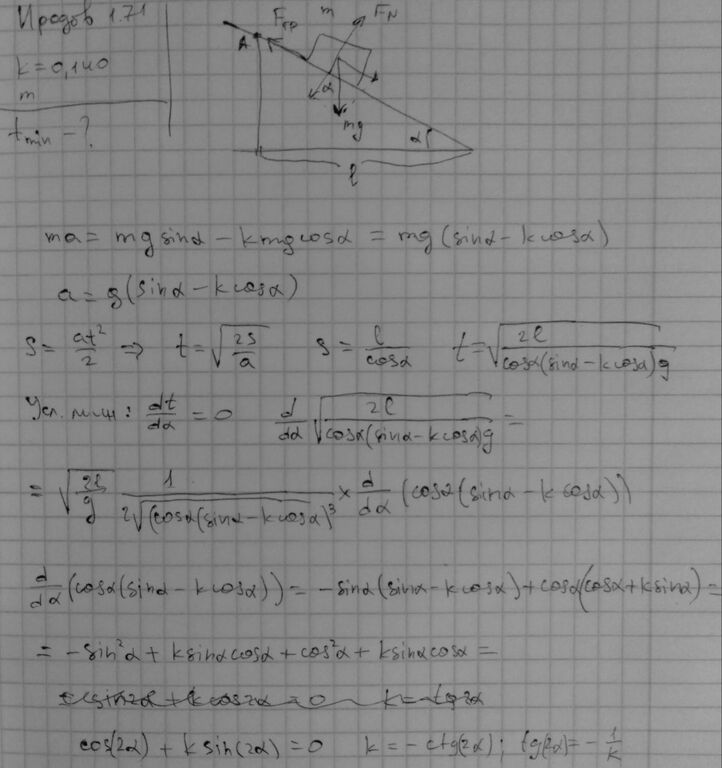 Иродов 1.71
k = 0,140
m
t_min - ?
A F_тр m F_N
α mg α
l
ma = mg sinα - kmg cosα = mg (sinα - k cosα)
a = g(sinα - k cosα)
S = at²/2 ⇒ t = √(2S/a) S = l/cosα t = √(2l/(cosα(sinα - k cosα)g))
Усл. мин: dt/dα = 0 d/dα √(2l/(cosα(sinα - k cosα)g)) =
= √(2l/g) 1/(2√(cosα(sinα - k cosα))³) × d/dα (cosα(sinα - k cosα))
d/dα (cosα(sinα - k cosα)) = -sinα(sinα - k cosα) + cosα(cosα + k sinα) =
= -sin²α + k sinα cosα + cos²α + k sinα cosα =
cos(2α) + k sin(2α) = 0 k = -ctg(2α); tg(2α) = -1/k